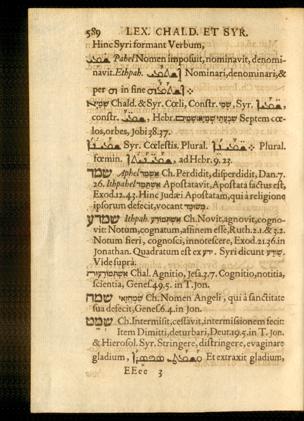 589 LEX. CHALD. ET SYR.
Hinc Syri formant Verbum,
Pabel Nomen imposuit, nominavit, denomi-
navit. Ethpah. Nominari, denominari, &
per in fine
Chald. & Syr. Cœli, Constr. שמי. Syr.
constr. Hebr. Septem cœ-
los, orbes, Job 38.37.
Syr. Cœlestis. Plural. Plural.
fœmin. ad Hebr. 9. 23.
שמד Aphel אשמד Ch. Perdidit, disperdidit, Dan. 7.
26. Ithpahel אשתמד Apostatavit, Apostata factus est,
Exod. 12. 43. Hinc Judæi Apostatam, qui à religione
ipsorum defecit, vocant משומד
שמדע Ithpah. אשתמודע Ch. Novit, agnovit, cogno-
vit: Notum, cognatum, affinem esse, Ruth. 2. 1. & 3. 2.
Notum fieri, cognosci, innotescere, Exod. 21. 36. in
Jonathan. Quadratum est ex ידע. Syri dicunt
Vide suprà.
Chal. Agnitio, Jes. 3. 7. Cognitio, notitia,
scientia, Genes. 49. 5. in T. Jon.
שמח שמחזאי Ch. Nomen Angeli, qui à sanctitate
sua defecit, Genes. 6. 4. in Jon.
שמט Ch. Intermisit, cessavit, intermissionem fecit:
Item Dimitti, deturbari, Deut. 19. 5. in T. Jon.
& Hierosol. Syr. Stringere, distringere, evaginare
gladium, Et extraxit gladium,
EEee 3